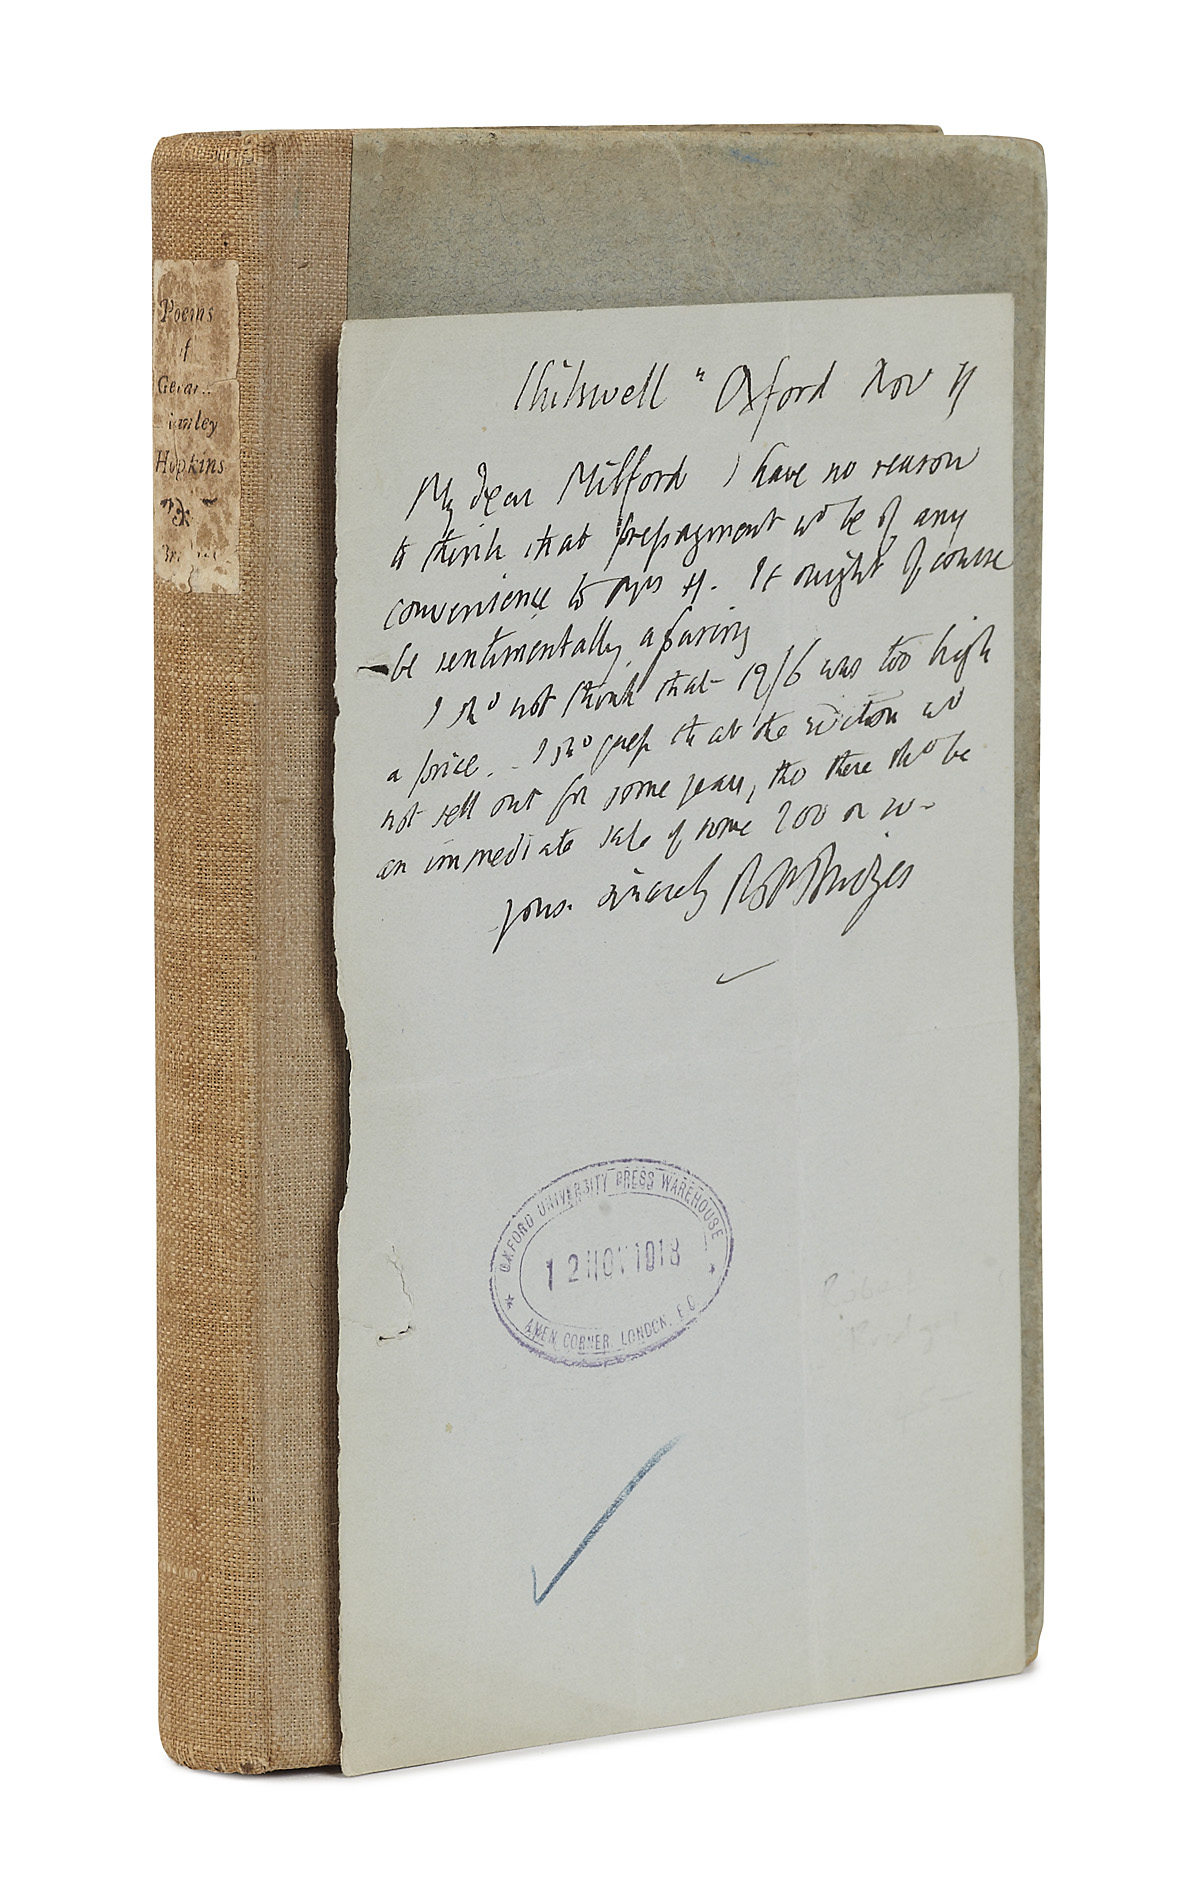 Poems
of
Hopkins
Chilswell Oxford Nov 11
My dear Milford I have no reason
to think that prepayment wd be of any
convenience to Mrs H. It might of course
be sentimentally pleasing
I shd not think that 12/6 was too high
a price. I shd guess that the edition wd
not sell out for some years, tho there shd be
an immediate sale of some 200 or so -
yours sincerely R Bridges
OXFORD UNIVERSITY PRESS WAREHOUSE
12 NOV 1918
AMEN CORNER, LONDON, E.C.
Robert